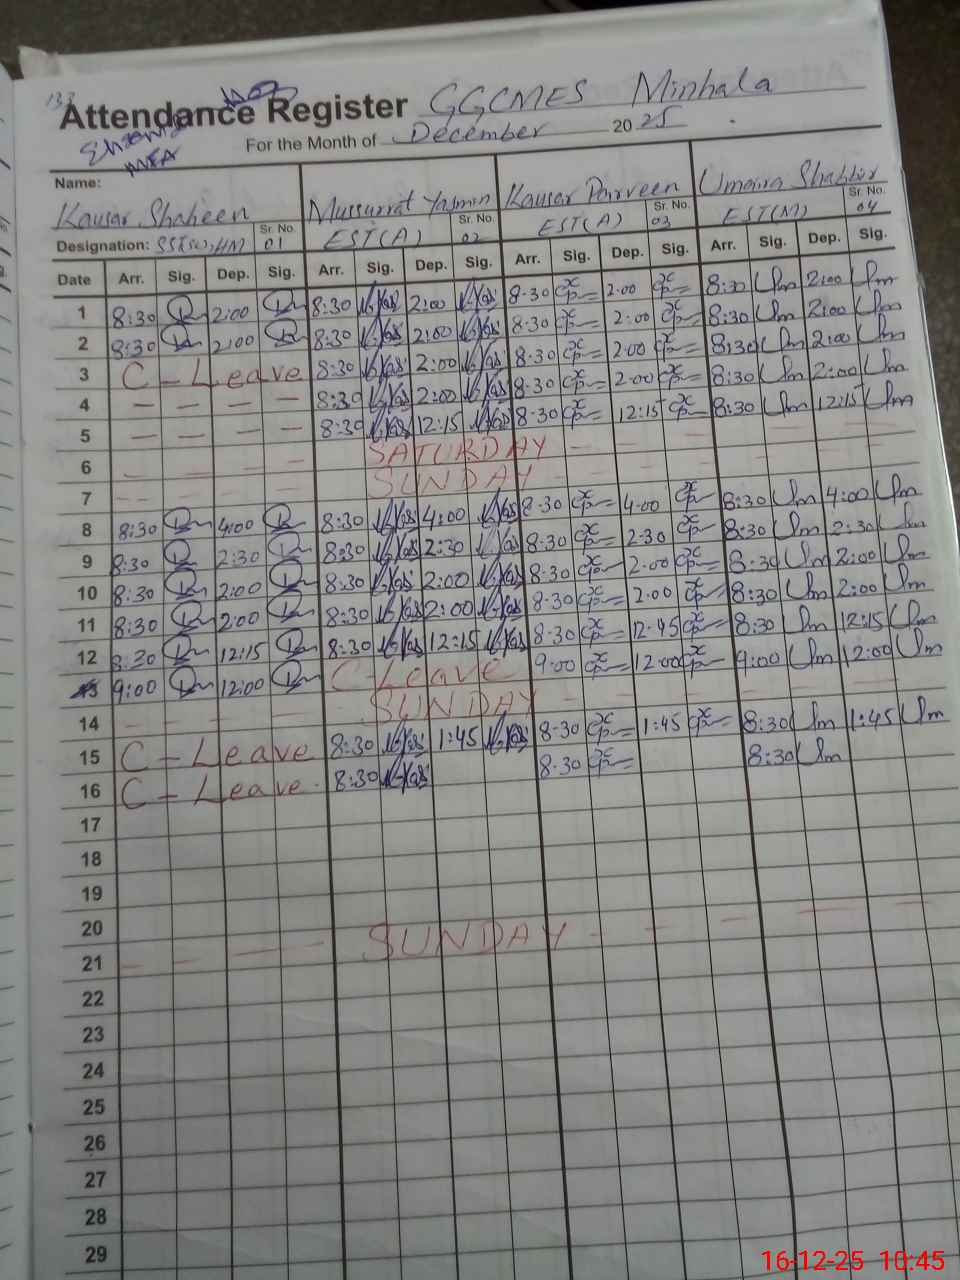 133
Attendance Register GGCMES Minhala
For the Month of December 2025
MEA
Name: Kausar Shaheen Mussurrat Yasmin Kausar Parveen Umaira Shabbir
Designation: Sr. No. 01 EST(A) Sr. No. 02 EST(A) Sr. No. 03 EST(M) Sr. No. 04
Date Arr. Sig. Dep. Sig. Arr. Sig. Dep. Sig. Arr. Sig. Dep. Sig. Arr. Sig. Dep. Sig.
1 8:30 2:00 8:30 2:00 8-30 2-00 8:30 2:00
2 8:30 2:00 8:30 2:00 8-30 2:00 8:30 2:00
3 C - Leave 8:30 2:00 8-30 2-00 8:30 2:00
4 — — — — 8:30 2:00 8-30 2-00 8:30 2:00
5 — — — — 8:30 12:15 8-30 12:15 8:30 12:15
6 SATURDAY
7 SUNDAY
8 8:30 4:00 8:30 4:00 8-30 4-00 8:30 4:00
9 8:30 2:30 8:30 2:30 8-30 2-30 8:30 2:30
10 8:30 2:00 8:30 2:00 8-30 2-00 8:30 2:00
11 8:30 2:00 8:30 2:00 8-30 2:00 8:30 2:00
12 8:30 12:15 8:30 12:15 8-30 12-45 8:30 12:15
13 9:00 12:00 C-Leave 9-00 12:00 9:00 12:00
14 SUNDAY
15 C - Leave 8:30 1:45 8-30 1:45 8:30 1:45
16 C - Leave 8:30 8-30 8:30
17
18
19
20
21 SUNDAY
22
23
24
25
26
27
28
29
16-12-25 10:45